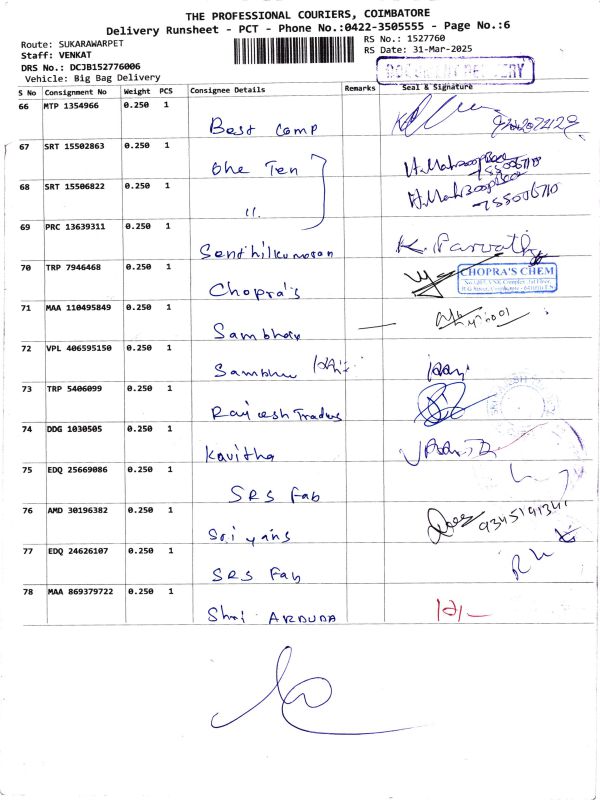 THE PROFESSIONAL COURIERS, COIMBATORE
Delivery Runsheet - PCT - Phone No.:0422-3505555 - Page No.:6
Route: SUKARAWARPET
RS No.: 1527760
Staff: VENKAT
RS Date: 31-Mar-2025
DRS No.: DCJB152776006
Vehicle: Big Bag Delivery
DELIVERY
S No Consignment No Weight PCS Consignee Details Remarks Seal & Signature
66 MTP 1354966 0.250 1
Best Comp
67 SRT 15502863 0.250 1
One Ten
7550056710
68 SRT 15506822 0.250 1
11.
7550056710
69 PRC 13639311 0.250 1
Senthilkumaran K. Parvath
70 TRP 7946468 0.250 1
Chopra's
CHOPRA'S CHEM
71 MAA 110495849 0.250 1
Sambhav
72 VPL 406595150 0.250 1
Sambhu
73 TRP 5406099 0.250 1
Rajesh Traders
74 DDG 1030505 0.250 1
Kavitha
75 EDQ 25669086 0.250 1
SRS Fab
76 AMD 30196382 0.250 1
Sriyans
77 EDQ 24626107 0.250 1
SRS Fab
78 MAA 869379722 0.250 1
Shri ARDUDA